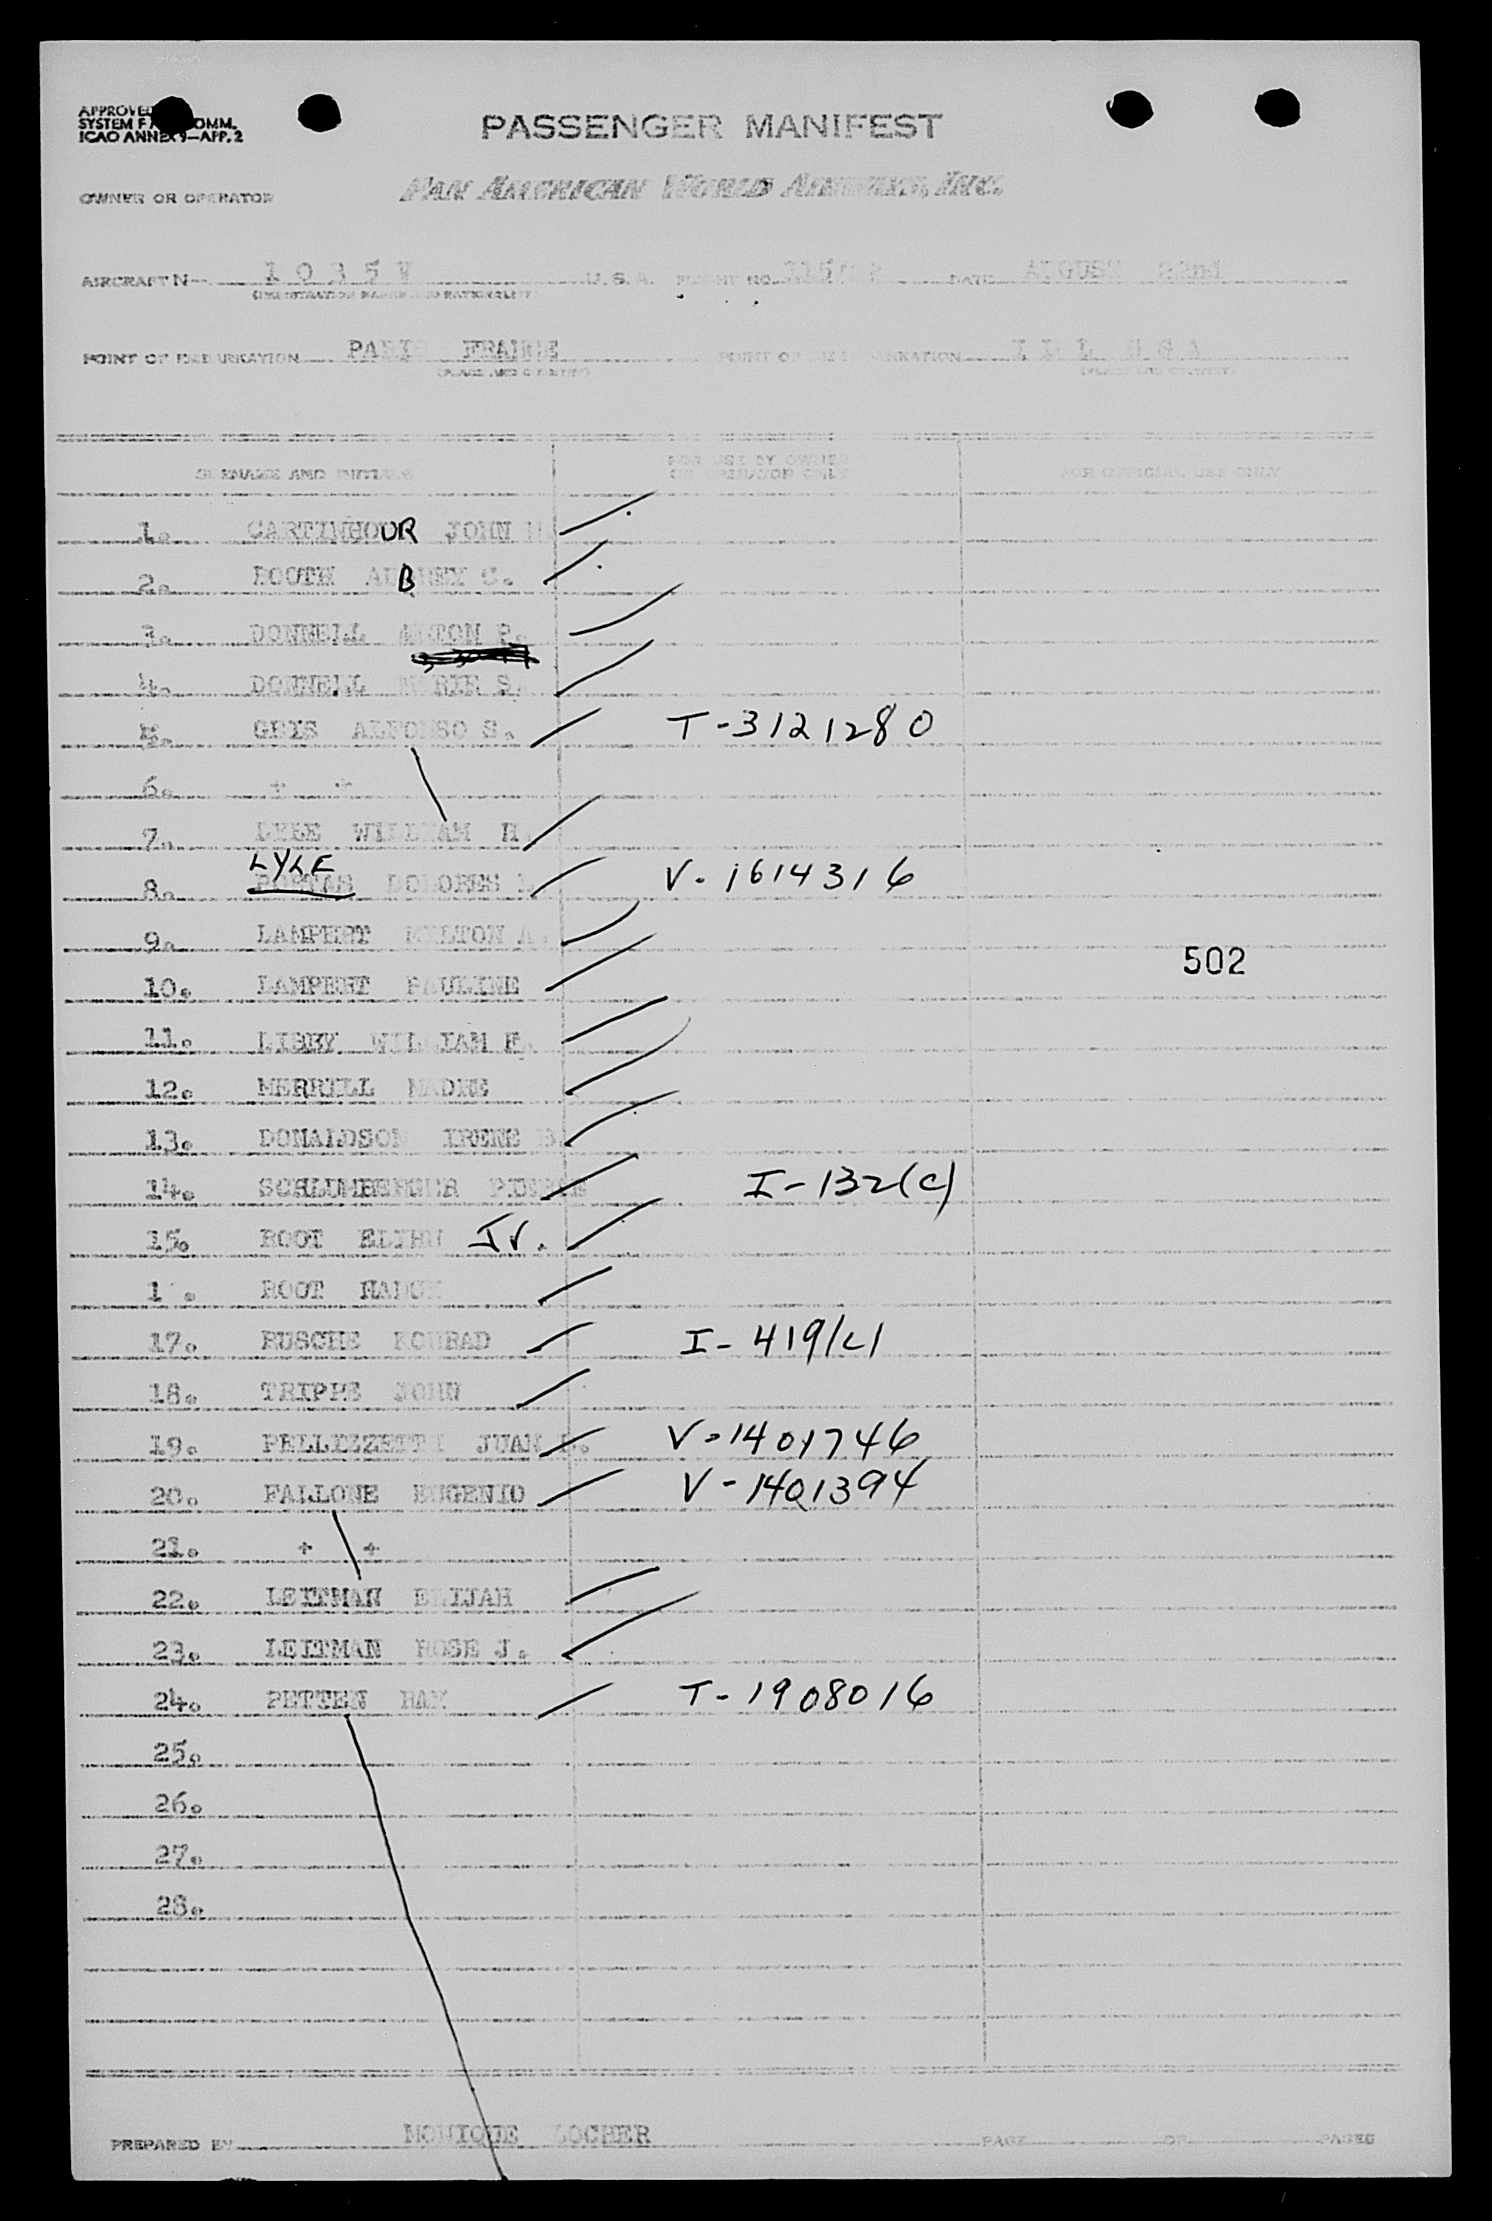 APPROVED
SYSTEM F COMM.
ICAO ANNEX 9—APP. 2
PASSENGER MANIFEST
OWNER OR OPERATOR PAN AMERICAN WORLD AIRWAYS, INC.
AIRCRAFT N- 1 0 3 5 V U. S. A. FLIGHT NO. 115/ DATE AUGUST 22nd
(REGISTRATION MARKS AND NATIONALITY)
POINT OF EMBARKATION PARIS FRANCE POINT OF DISEMBARKATION I D L U S A
(PLACE AND COUNTRY) (PLACE AND COUNTRY)
SURNAME AND INITIALS FOR USE BY OWNER OR OPERATOR ONLY FOR OFFICIAL USE ONLY
1. CARTINHOUR JOHN
2. BOOTH AUBREY C.
3. DONNELL ALTON P.
4. DONNELL MARIE S.
5. GRIS ALFONSO S. T-3121280
6. + +
7. LYLE WILLIAM H.
LYLE
8. DOLORES V-1614316
9. LAMPERT MILTON A.
502
10. LAMPERT PAULINE
11. LIBBY WILLIAM F.
12. MERRILL MADNE
13. DONALDSON IRENE B.
14. SCHLUMBERGER PIERRE I-132(c)
15. ROOT ELIHU Jr.
1 . ROOT
17. RUSCHE KONRAD I-419/c/
18. TRIPPE JOHN
19. PELLIZZETTI JUAN V-1401746
20. FALLONE EUGENIO V-1401394
21. + +
22. LEITMAN ELIJAH
23. LEITMAN ROSE J.
24. PETTEN HAM T-1908016
25.
26.
27.
28.
PREPARED BY MONIQUE LOCHER PAGE OF PAGES